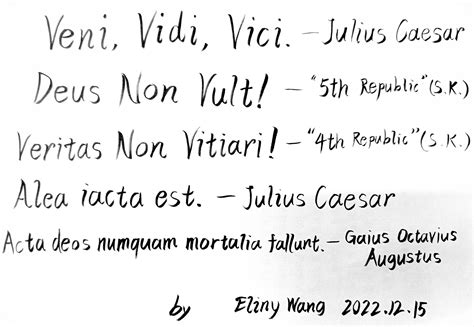 Veni, Vidi, Vici. – Julius Caesar
Deus Non Vult! – "5th Republic" (S.K.)
Veritas Non Vitiari! – "4th Republic" (S.K.)
Alea iacta est. – Julius Caesar
Acta deos numquam mortalia fallunt. – Gaius Octavius
Augustus
by Eliny Wang 2022.12.15